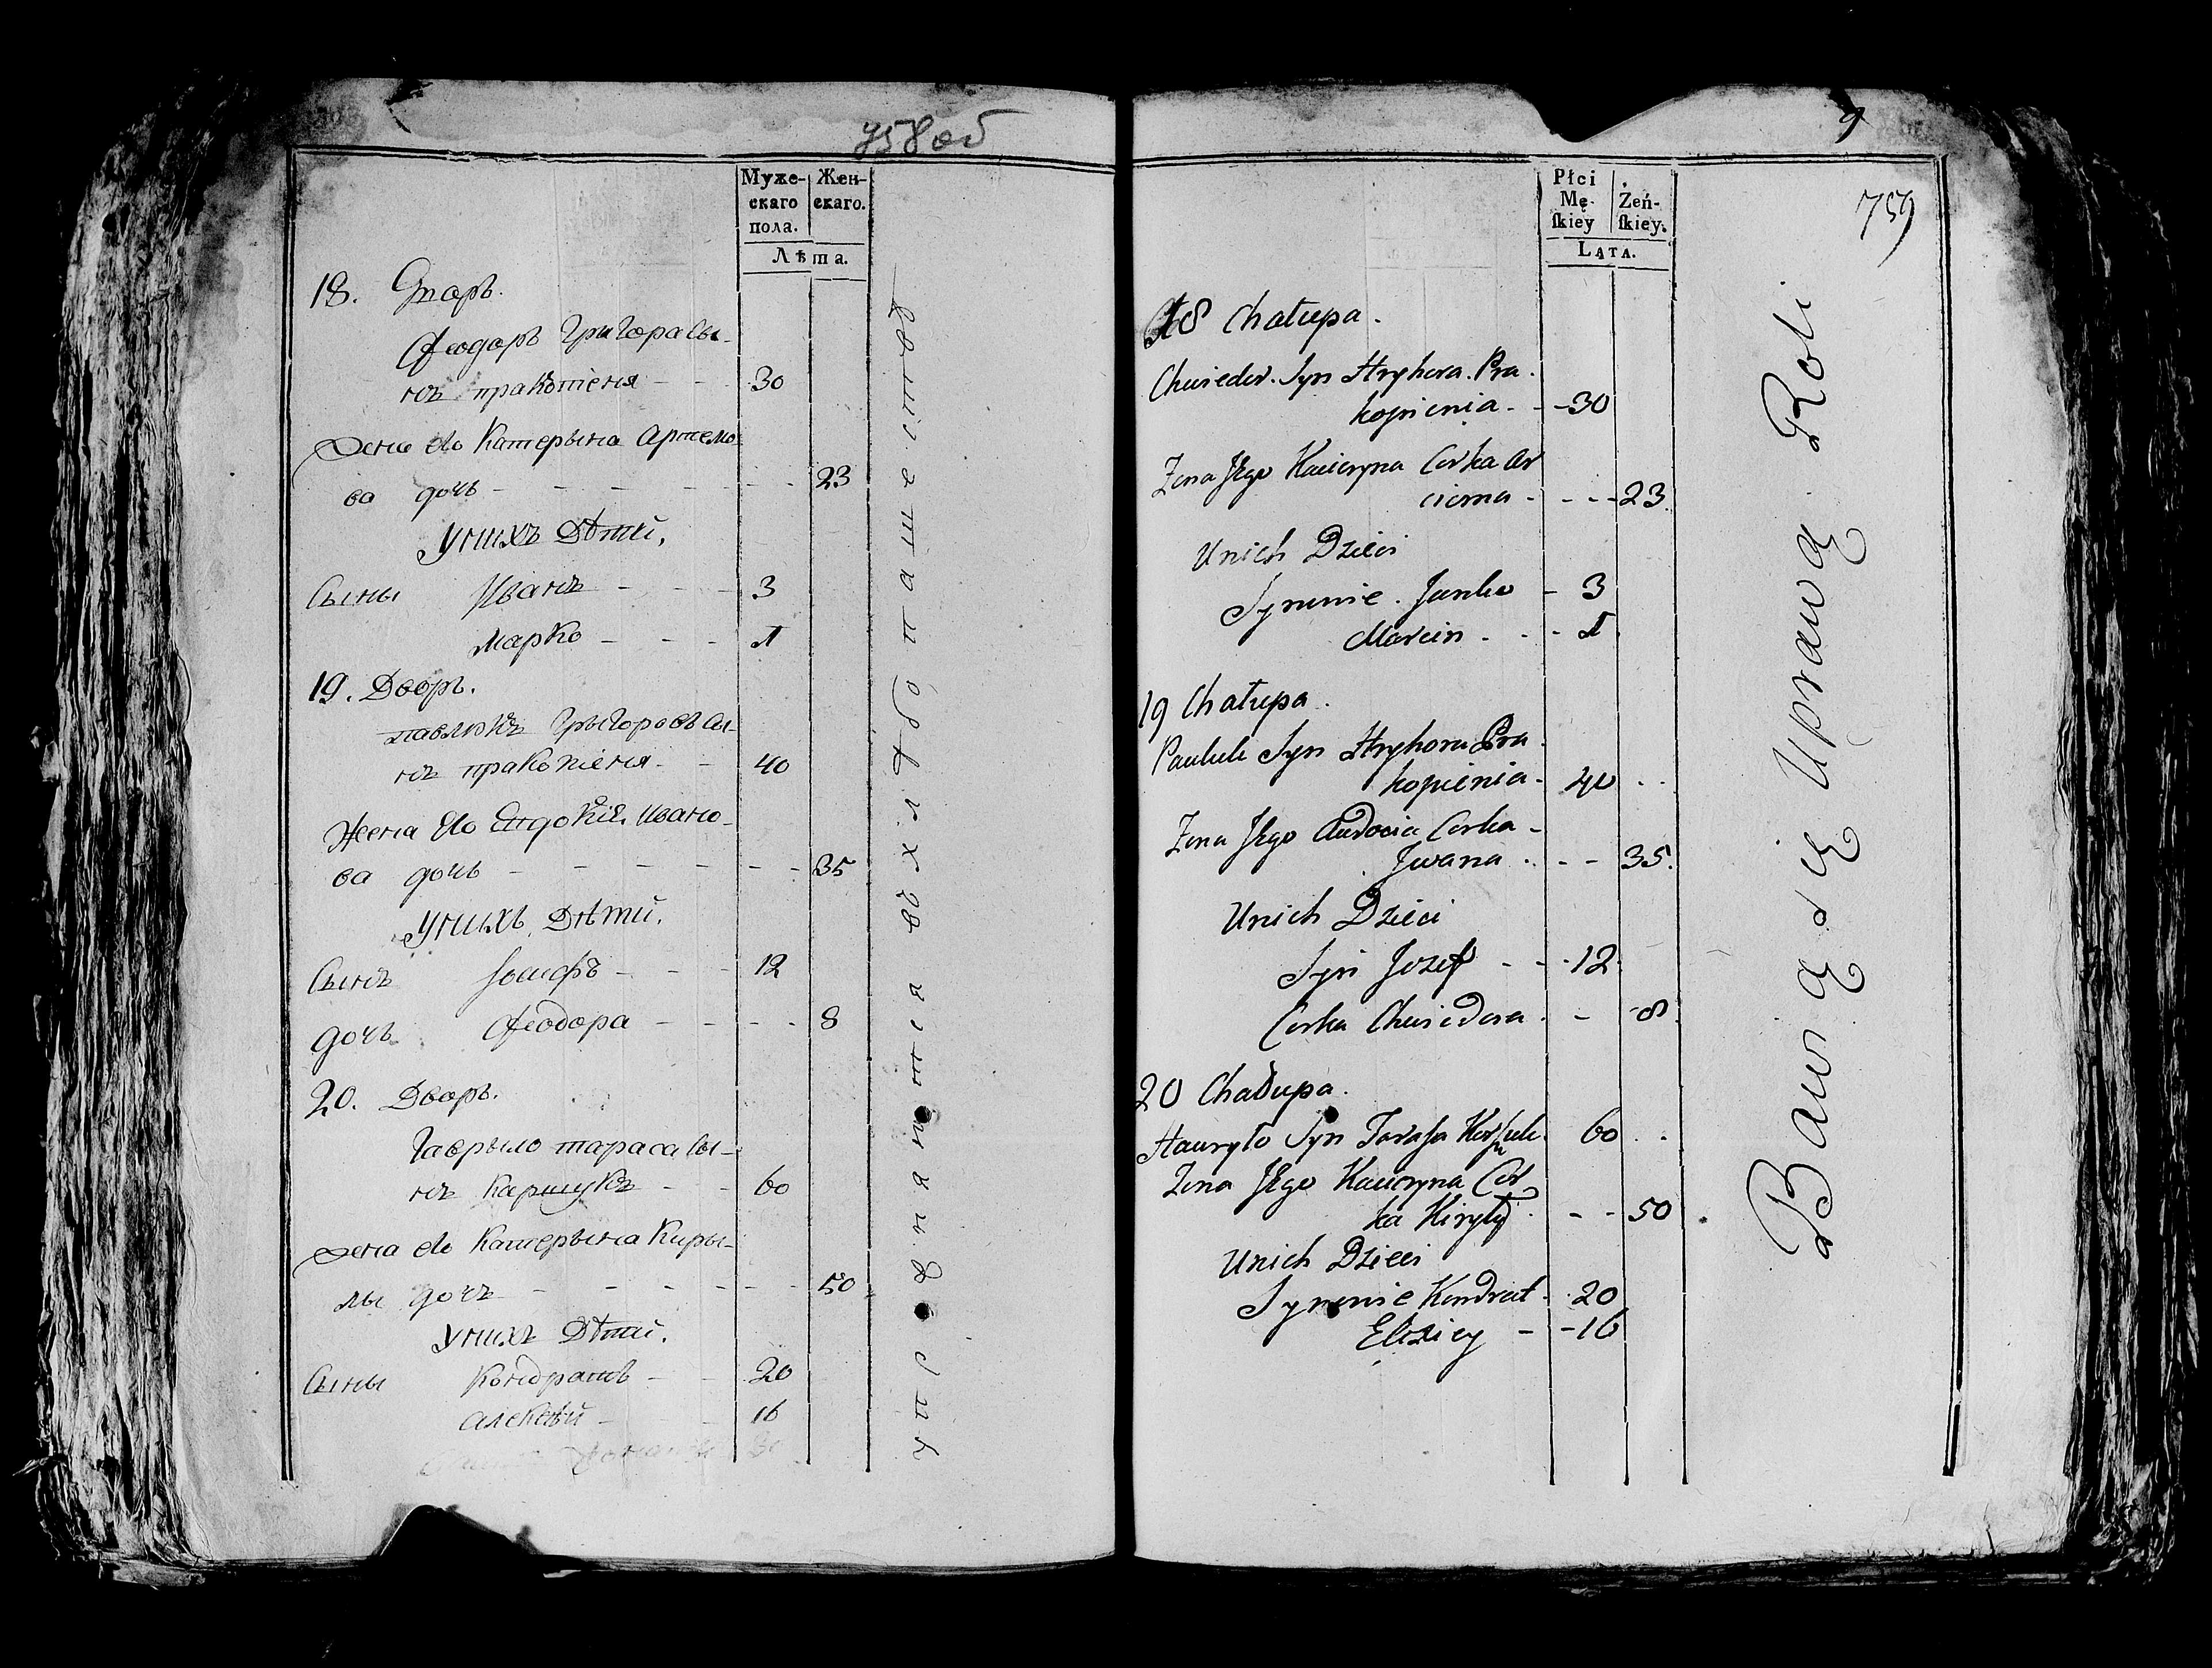 758об
Муже- Жен-
скаго скаго.
пола.
Лѣта.
18. Дворъ.
Феодоръ Григора сы-
нъ пракопеня - - 30
Жена его Катерына Артемо
ва дочь - - - - - - 23
У нихъ Дѣтей,
Сыны Иванъ - - - 3
Марко - - - 1
19. Дворъ.
павлюкъ Грыгоровъ сы-
нъ пракопеня - - 40
Жена его Евдокія Ивано-
ва дочь - - - - - - 35
У нихъ Дѣтей.
Сынъ Іосифъ - - - 12
дочь Феодора - - - - 8
20. Дворъ.
Гаврыло тараса сы-
нъ Каршукъ - - 60
Жена его Катерына Киры-
лы дочь - - - - - - 50
У нихъ Дѣтей.
Сыны Кондратъ - - 20
Алексѣй - - 16
упражняются въ хлѣбопашествѣ
9
759
Płci
Mę- Żeń-
ſkiey ſkiey.
Lata.
18 Chałupa.
Chwiedor. Syn Hryhora. Pra.
kopienia - - 30
Zona Jego Kacieryna Corka Ar
ciema - - - - 23
Unich Dzieci
Synowie. Janko - 3
Marcin - - - 1
19 Chałupa.
Pauluk Syn Hryhora Pra
kopienia - 40 - -
Zona Jego Audocia Corka -
Jwana - - - 35.
Unich Dzieci
Syn Jozef - - - 12
Corka Chwiedora - - - 8
20 Chałupa.
Hauryło Syn Tarasa Karszuk 60 - -
Zona Jego Kacieryna Cor
ka Kiryły - - - 50
Unich Dzieci
Synowie Kondrat - 20
Elexiey - - 16
Bawią się Uprawą Roli